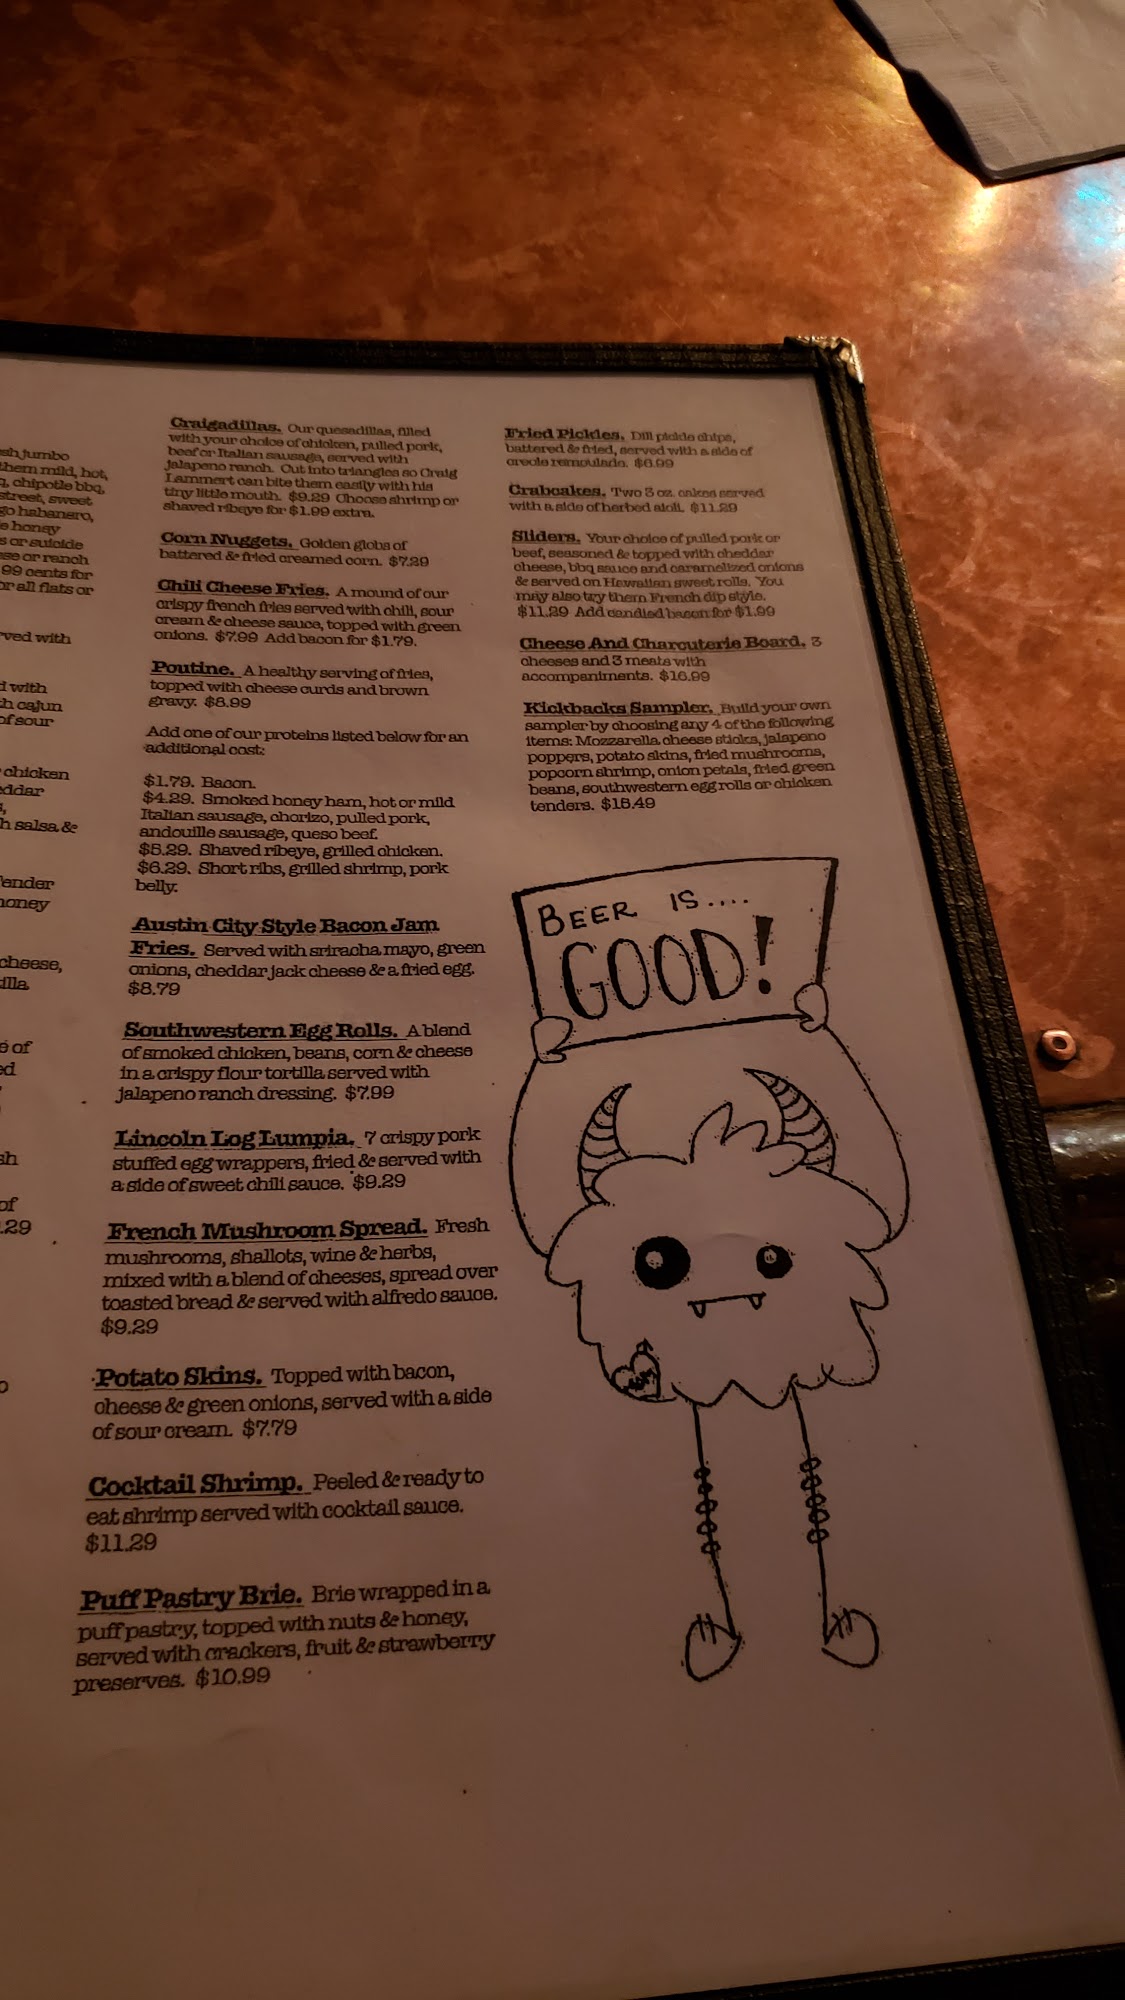 sh jumbo
them mild, hot,
q, chipotle bbq,
street, sweet
go habanero,
e honey
s or suicide
ese or ranch
.99 cents for
or all flats or
rved with
d with
h cajun
of sour
chicken
eddar
h salsa &
ender
honey
cheese,
illa
e of
ed
sh
of
.29
Craigadillas. Our quesadillas, filled
with your choice of chicken, pulled pork,
beef or Italian sausage, served with
jalapeno ranch. Cut into triangles so Craig
Lammert can bite them easily with his
tiny little mouth. $9.29 Choose shrimp or
shaved ribeye for $1.99 extra.
Corn Nuggets. Golden globs of
battered & fried creamed corn. $7.29
Chili Cheese Fries. A mound of our
crispy french fries served with chili, sour
cream & cheese sauce, topped with green
onions. $7.99 Add bacon for $1.79.
Poutine. A healthy serving of fries,
topped with cheese curds and brown
gravy. $8.99
Add one of our proteins listed below for an
additional cost:
$1.79. Bacon.
$4.29. Smoked honey ham, hot or mild
Italian sausage, chorizo, pulled pork,
andouille sausage, queso beef.
$5.29. Shaved ribeye, grilled chicken.
$6.29. Short ribs, grilled shrimp, pork
belly.
Austin City Style Bacon Jam
Fries. Served with sriracha mayo, green
onions, cheddar jack cheese & a fried egg.
$8.79
Southwestern Egg Rolls. A blend
of smoked chicken, beans, corn & cheese
in a crispy flour tortilla served with
jalapeno ranch dressing. $7.99
Lincoln Log Lumpia. 7 crispy pork
stuffed egg wrappers, fried & served with
a side of sweet chili sauce. $9.29
French Mushroom Spread. Fresh
mushrooms, shallots, wine & herbs,
mixed with a blend of cheeses, spread over
toasted bread & served with alfredo sauce.
$9.29
Potato Skins. Topped with bacon,
cheese & green onions, served with a side
of sour cream. $7.79
Cocktail Shrimp. Peeled & ready to
eat shrimp served with cocktail sauce.
$11.29
Puff Pastry Brie. Brie wrapped in a
puff pastry, topped with nuts & honey,
served with crackers, fruit & strawberry
preserves. $10.99
Fried Pickles. Dill pickle chips,
battered & fried, served with a side of
creole remoulade. $6.99
Crabcakes. Two 3 oz. cakes served
with a side of herbed aioli. $11.29
Sliders. Your choice of pulled pork or
beef, seasoned & topped with cheddar
cheese, bbq sauce and caramelized onions
& served on Hawaiian sweet rolls. You
may also try them French dip style.
$11.29 Add candied bacon for $1.99
Cheese And Charcuterie Board. 3
cheeses and 3 meats with
accompaniments. $16.99
Kickbacks Sampler. Build your own
sampler by choosing any 4 of the following
items: Mozzarella cheese sticks, jalapeno
poppers, potato skins, fried mushrooms,
popcorn shrimp, onion petals, fried green
beans, southwestern egg rolls or chicken
tenders. $15.49
BEER IS....
GOOD!